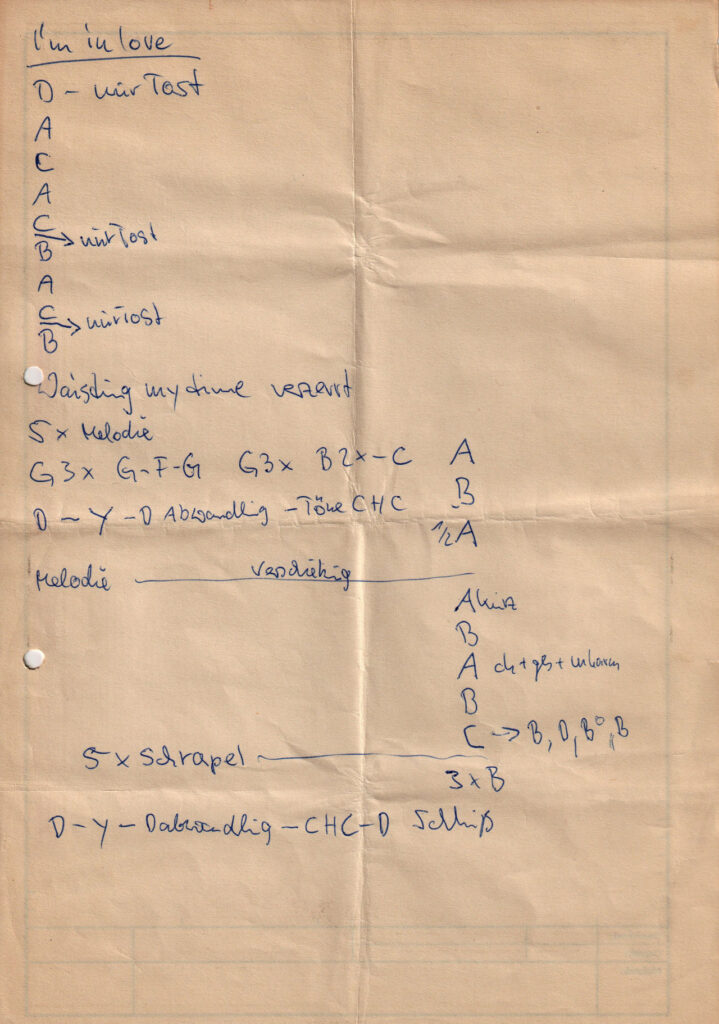 I'm in love
D - nur Tast
A
C
A
C
B → nur Tast
A
C
B → nur Tast
Waisting my time verzerrt
5 x Melodie
G3x G-F-G G3x B2x-C A
D - Y - D Abwandlig - Töne CHC B
1/2 A
Melodie
A kurz
B
A
B
C → B, D, B°, B
5 x Schrapel
3 x B
D - Y - Dabwandlig - CHC - D Schluß